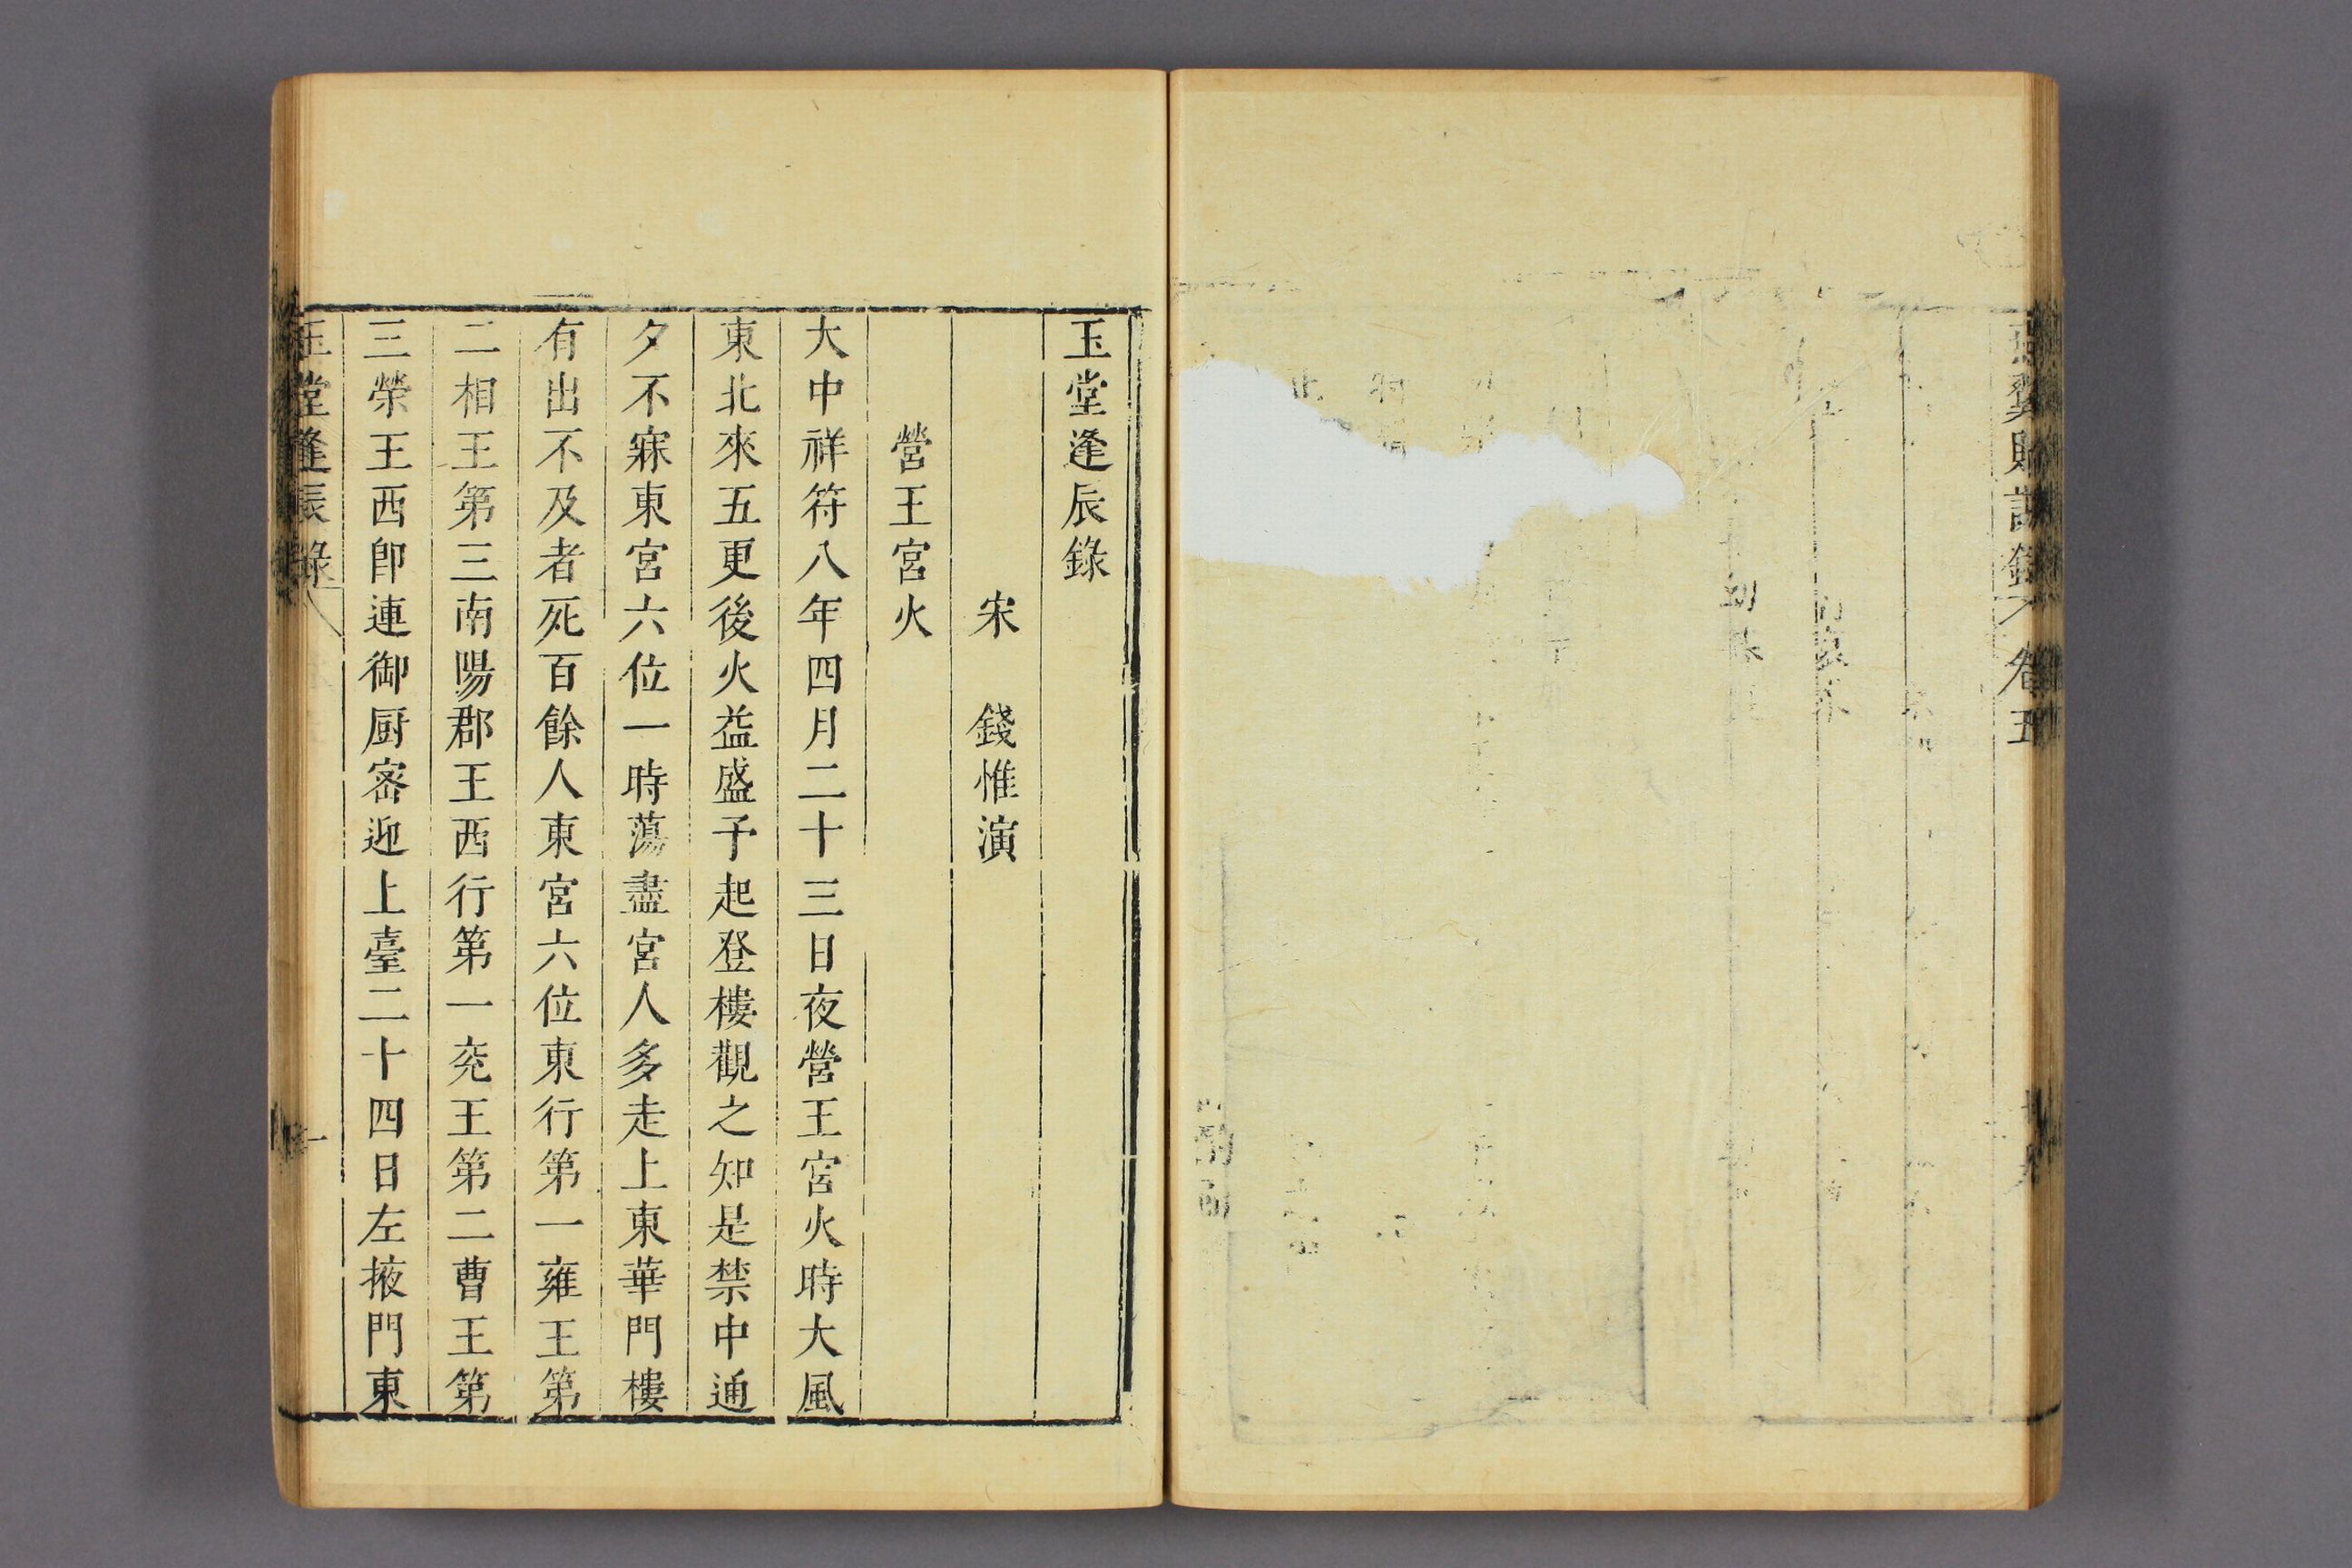 玉堂逢辰錄
宋　錢惟演
營王宮火
大中祥符八年四月二十三日夜營王宮火時大風
東北來五更後火益盛予起登樓觀之知是禁中通
夕不寐東宮六位一時蕩盡宮人多走上東華門樓
有出不及者死百餘人東宮六位東行第一雍王第
二相王第三南陽郡王西行第一兖王第二曹王第
三榮王西卽連御厨密迎上臺二十四日左掖門東
玉堂逢辰錄
一